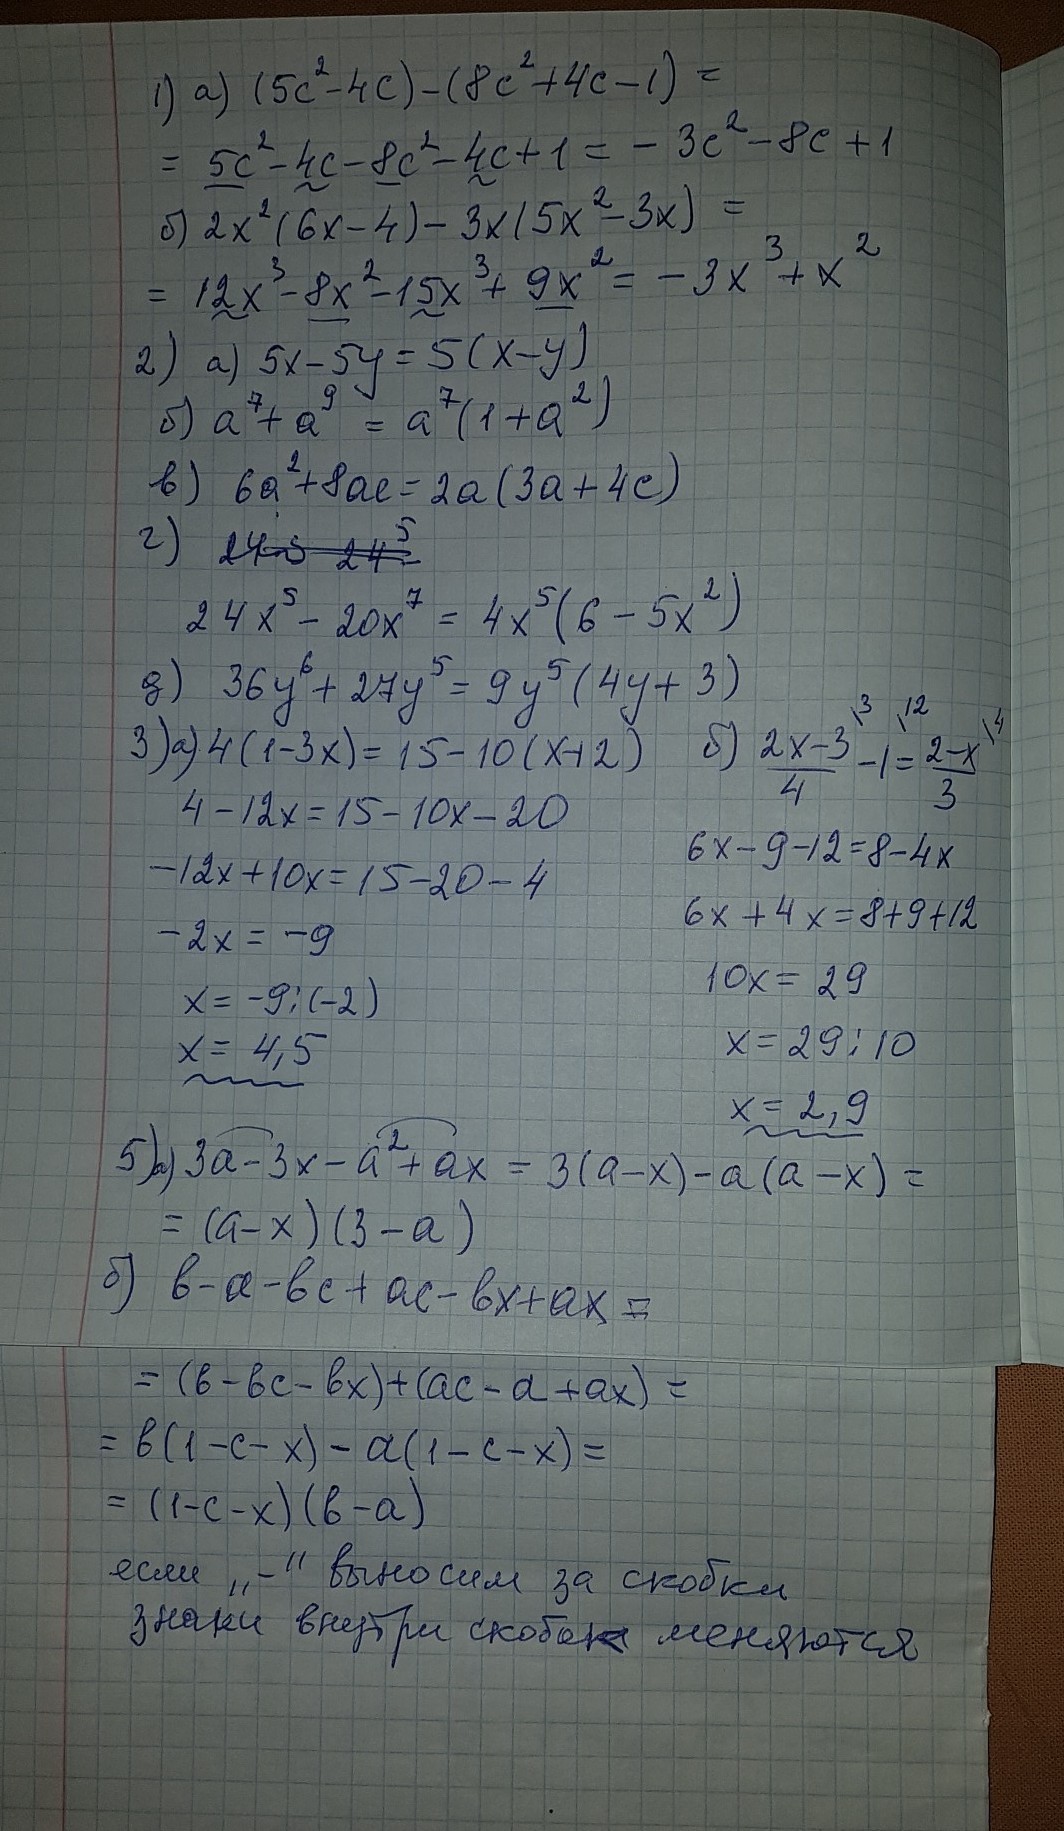 1) а) (5c²-4c)-(8c²+4c-1) =
= 5c²-4c-8c²-4c+1 = -3c²-8c+1
б) 2x²(6x-4)-3x(5x²-3x) =
= 12x³-8x²-15x³+9x² = -3x³+x²
2) а) 5x-5y=5(x-y)
б) a⁷+a⁹ = a⁷(1+a²)
в) 6a²+8ac=2a(3a+4c)
г)
24x⁵-20x⁷ = 4x⁵(6-5x²)
д) 36y⁶+27y⁵=9y⁵(4y+3)
3) а) 4(1-3x)=15-10(x+2)
4-12x=15-10x-20
-12x+10x=15-20-4
-2x = -9
x = -9:(-2)
x = 4,5
б) (2x-3)/4 \3 - 1 \12 = (2-x)/3 \4
6x-9-12=8-4x
6x+4x=8+9+12
10x = 29
x=29:10
x=2,9
5) а) 3a-3x-a²+ax = 3(a-x)-a(a-x) =
= (a-x)(3-a)
б) в-a-вc+ac-вx+ax =
= (в-вc-вx)+(ac-a+ax) =
= в(1-c-x)-a(1-c-x) =
= (1-c-x)(в-a)
если „-“ выносим за скобки
знаки внутри скобок меняются